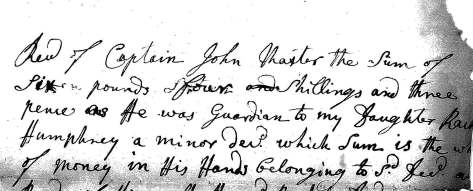 Recd of Captain John Martor the Sum of
Six pounds four Shillings and three
pence as He was Guardian to my Daughter
Humphrey a minor decd which Sum is the
of money in His Hands belonging to sd decd